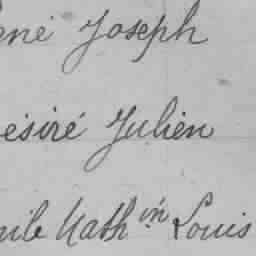 ené Joseph
ésiré Julien
mile Math in Louis